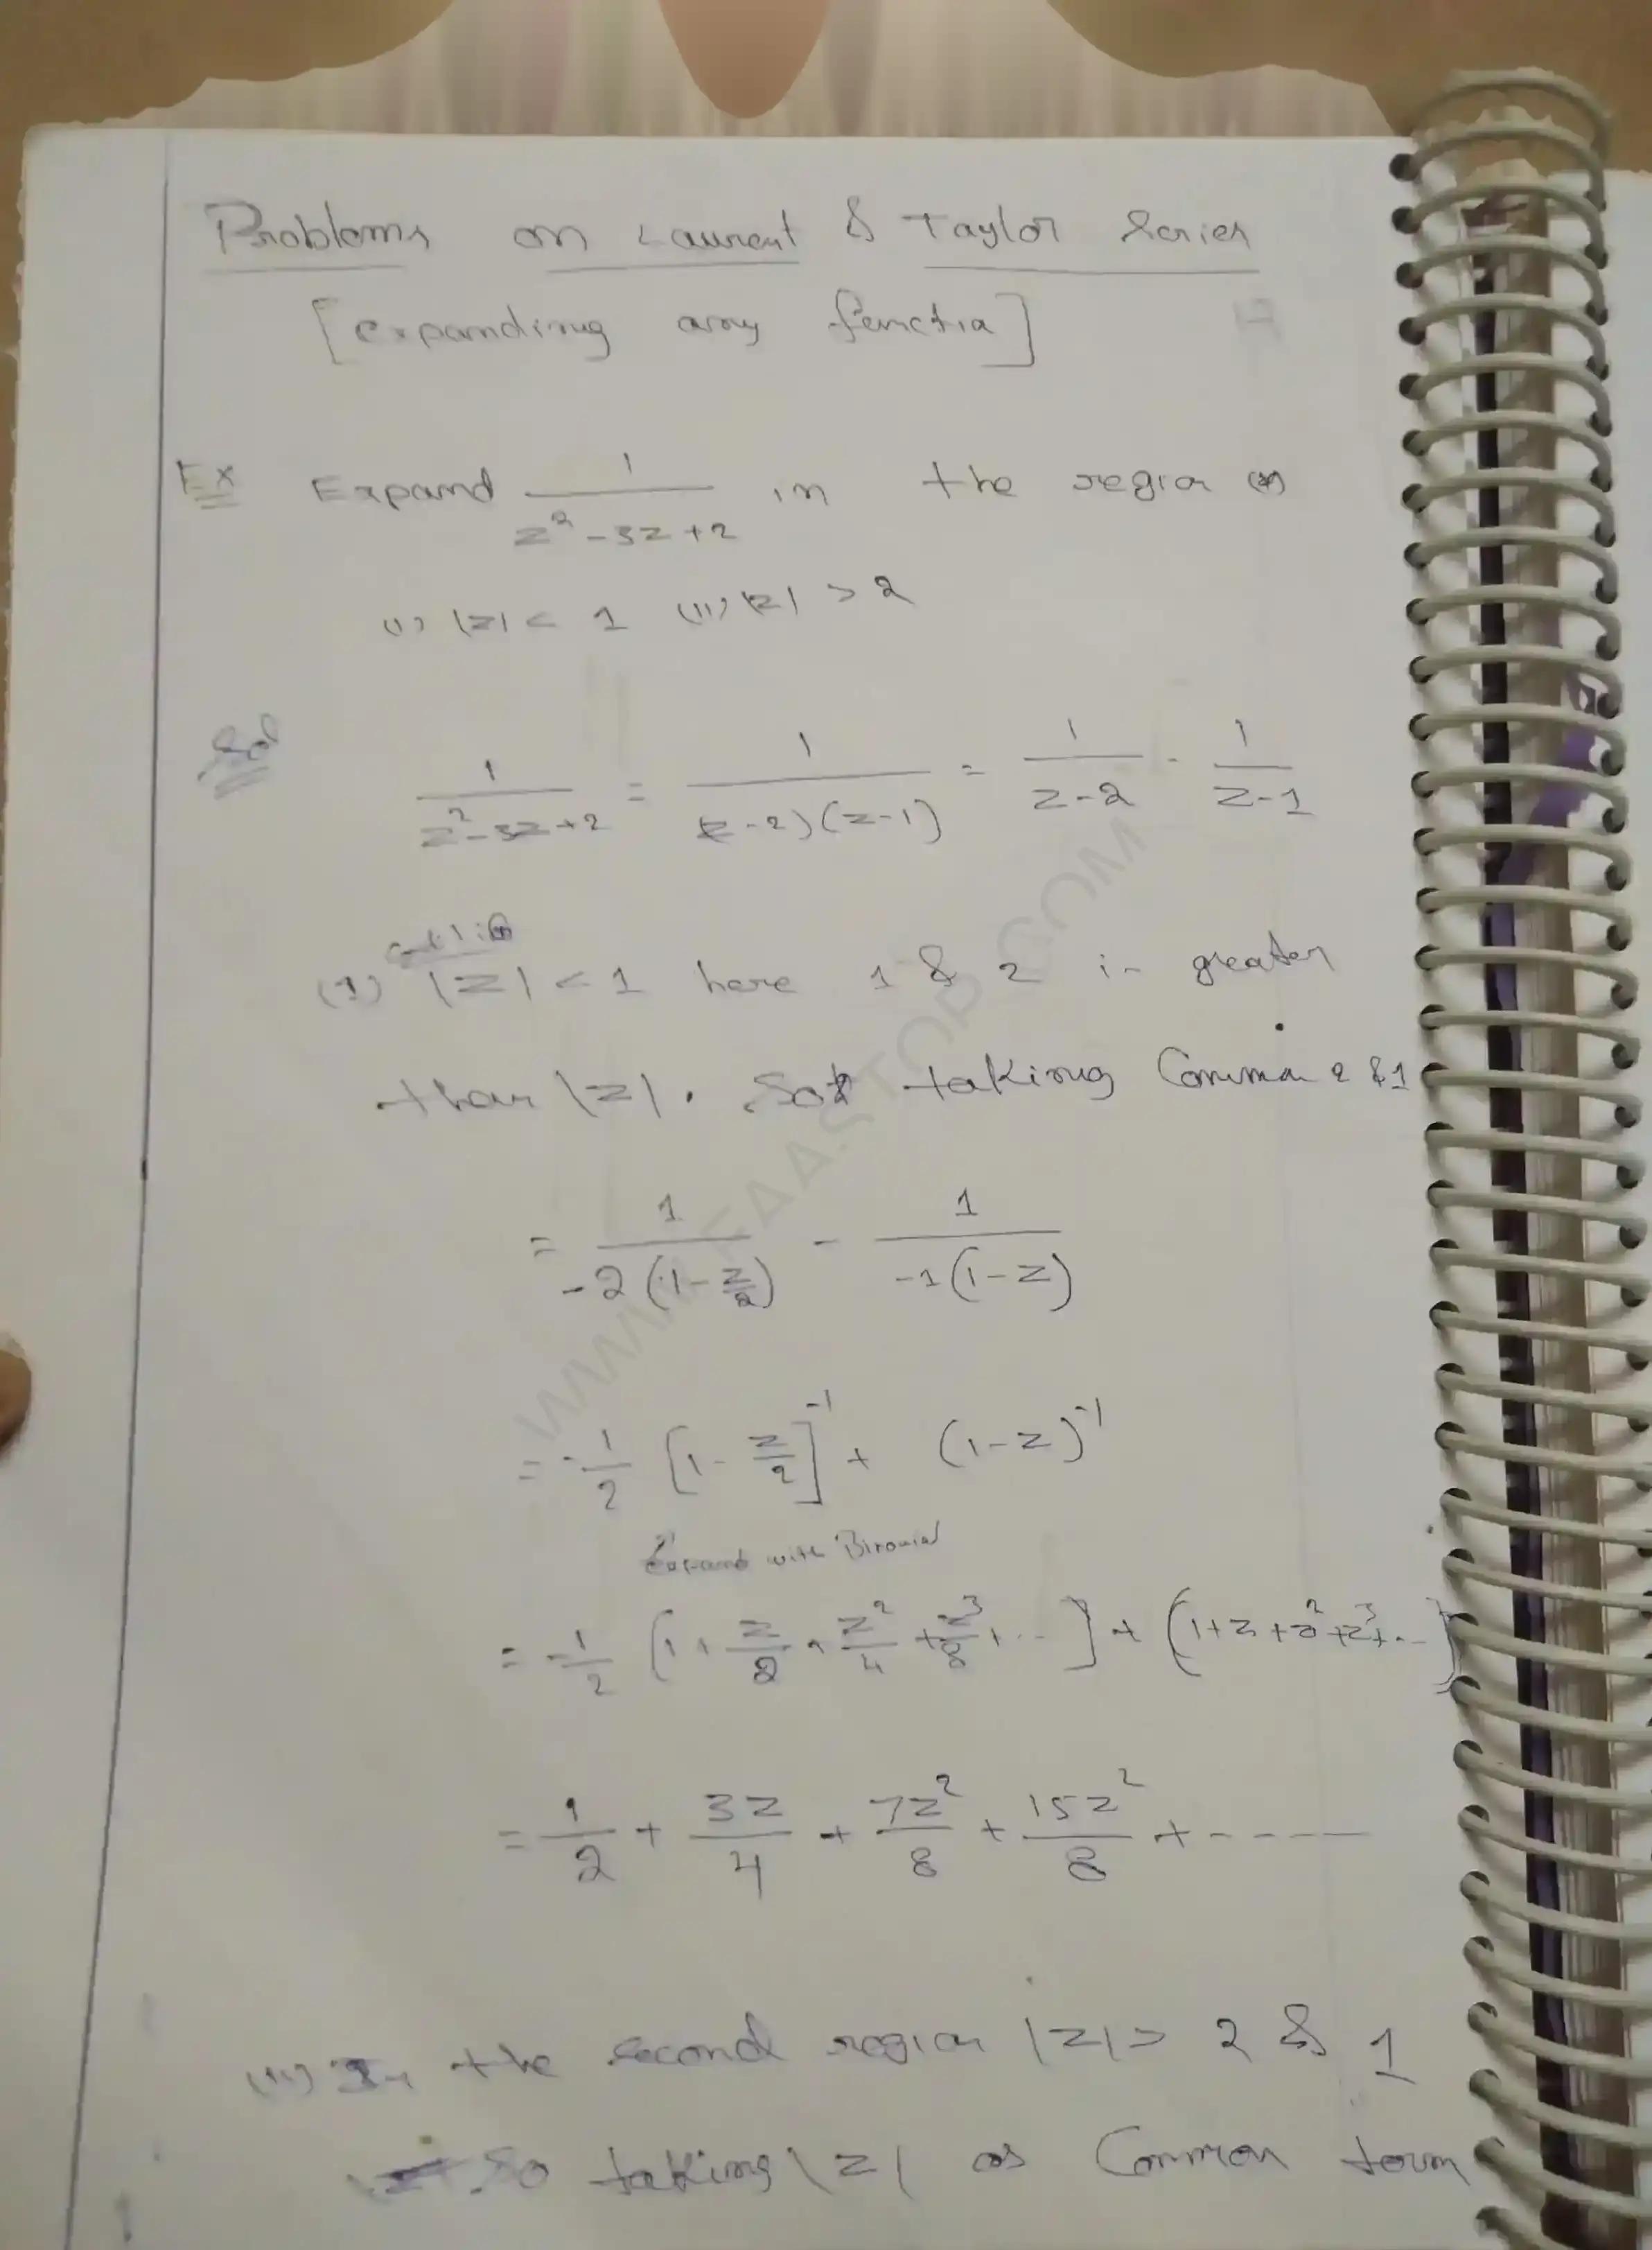 Problems on Laurent & Taylor Series
[expanding any functio]
Ex Expand 1/(z² - 3z + 2) in the region
(i) |z| < 1 (ii) |z| > 2
Sol
1/(z² - 3z + 2) = 1/((z - 2)(z - 1)) = 1/(z - 2) - 1/(z - 1)
(1) |z| < 1 here 1 & 2 is greater
than |z|. So taking Common 2 & 1
= 1/(-2(1 - z/2)) - 1/(-1(1 - z))
= -1/2 [1 - z/2]⁻¹ + (1 - z)⁻¹
Expand with Binomial
= -1/2 [1 + z/2 + z²/4 + z³/8 + ...] + (1 + z + z² + z³ + ...)
= 1/2 + 3z/4 + 7z²/8 + 15z²/8 + -----
(ii) In the second region |z| > 2 & 1
So taking |z| as Common term